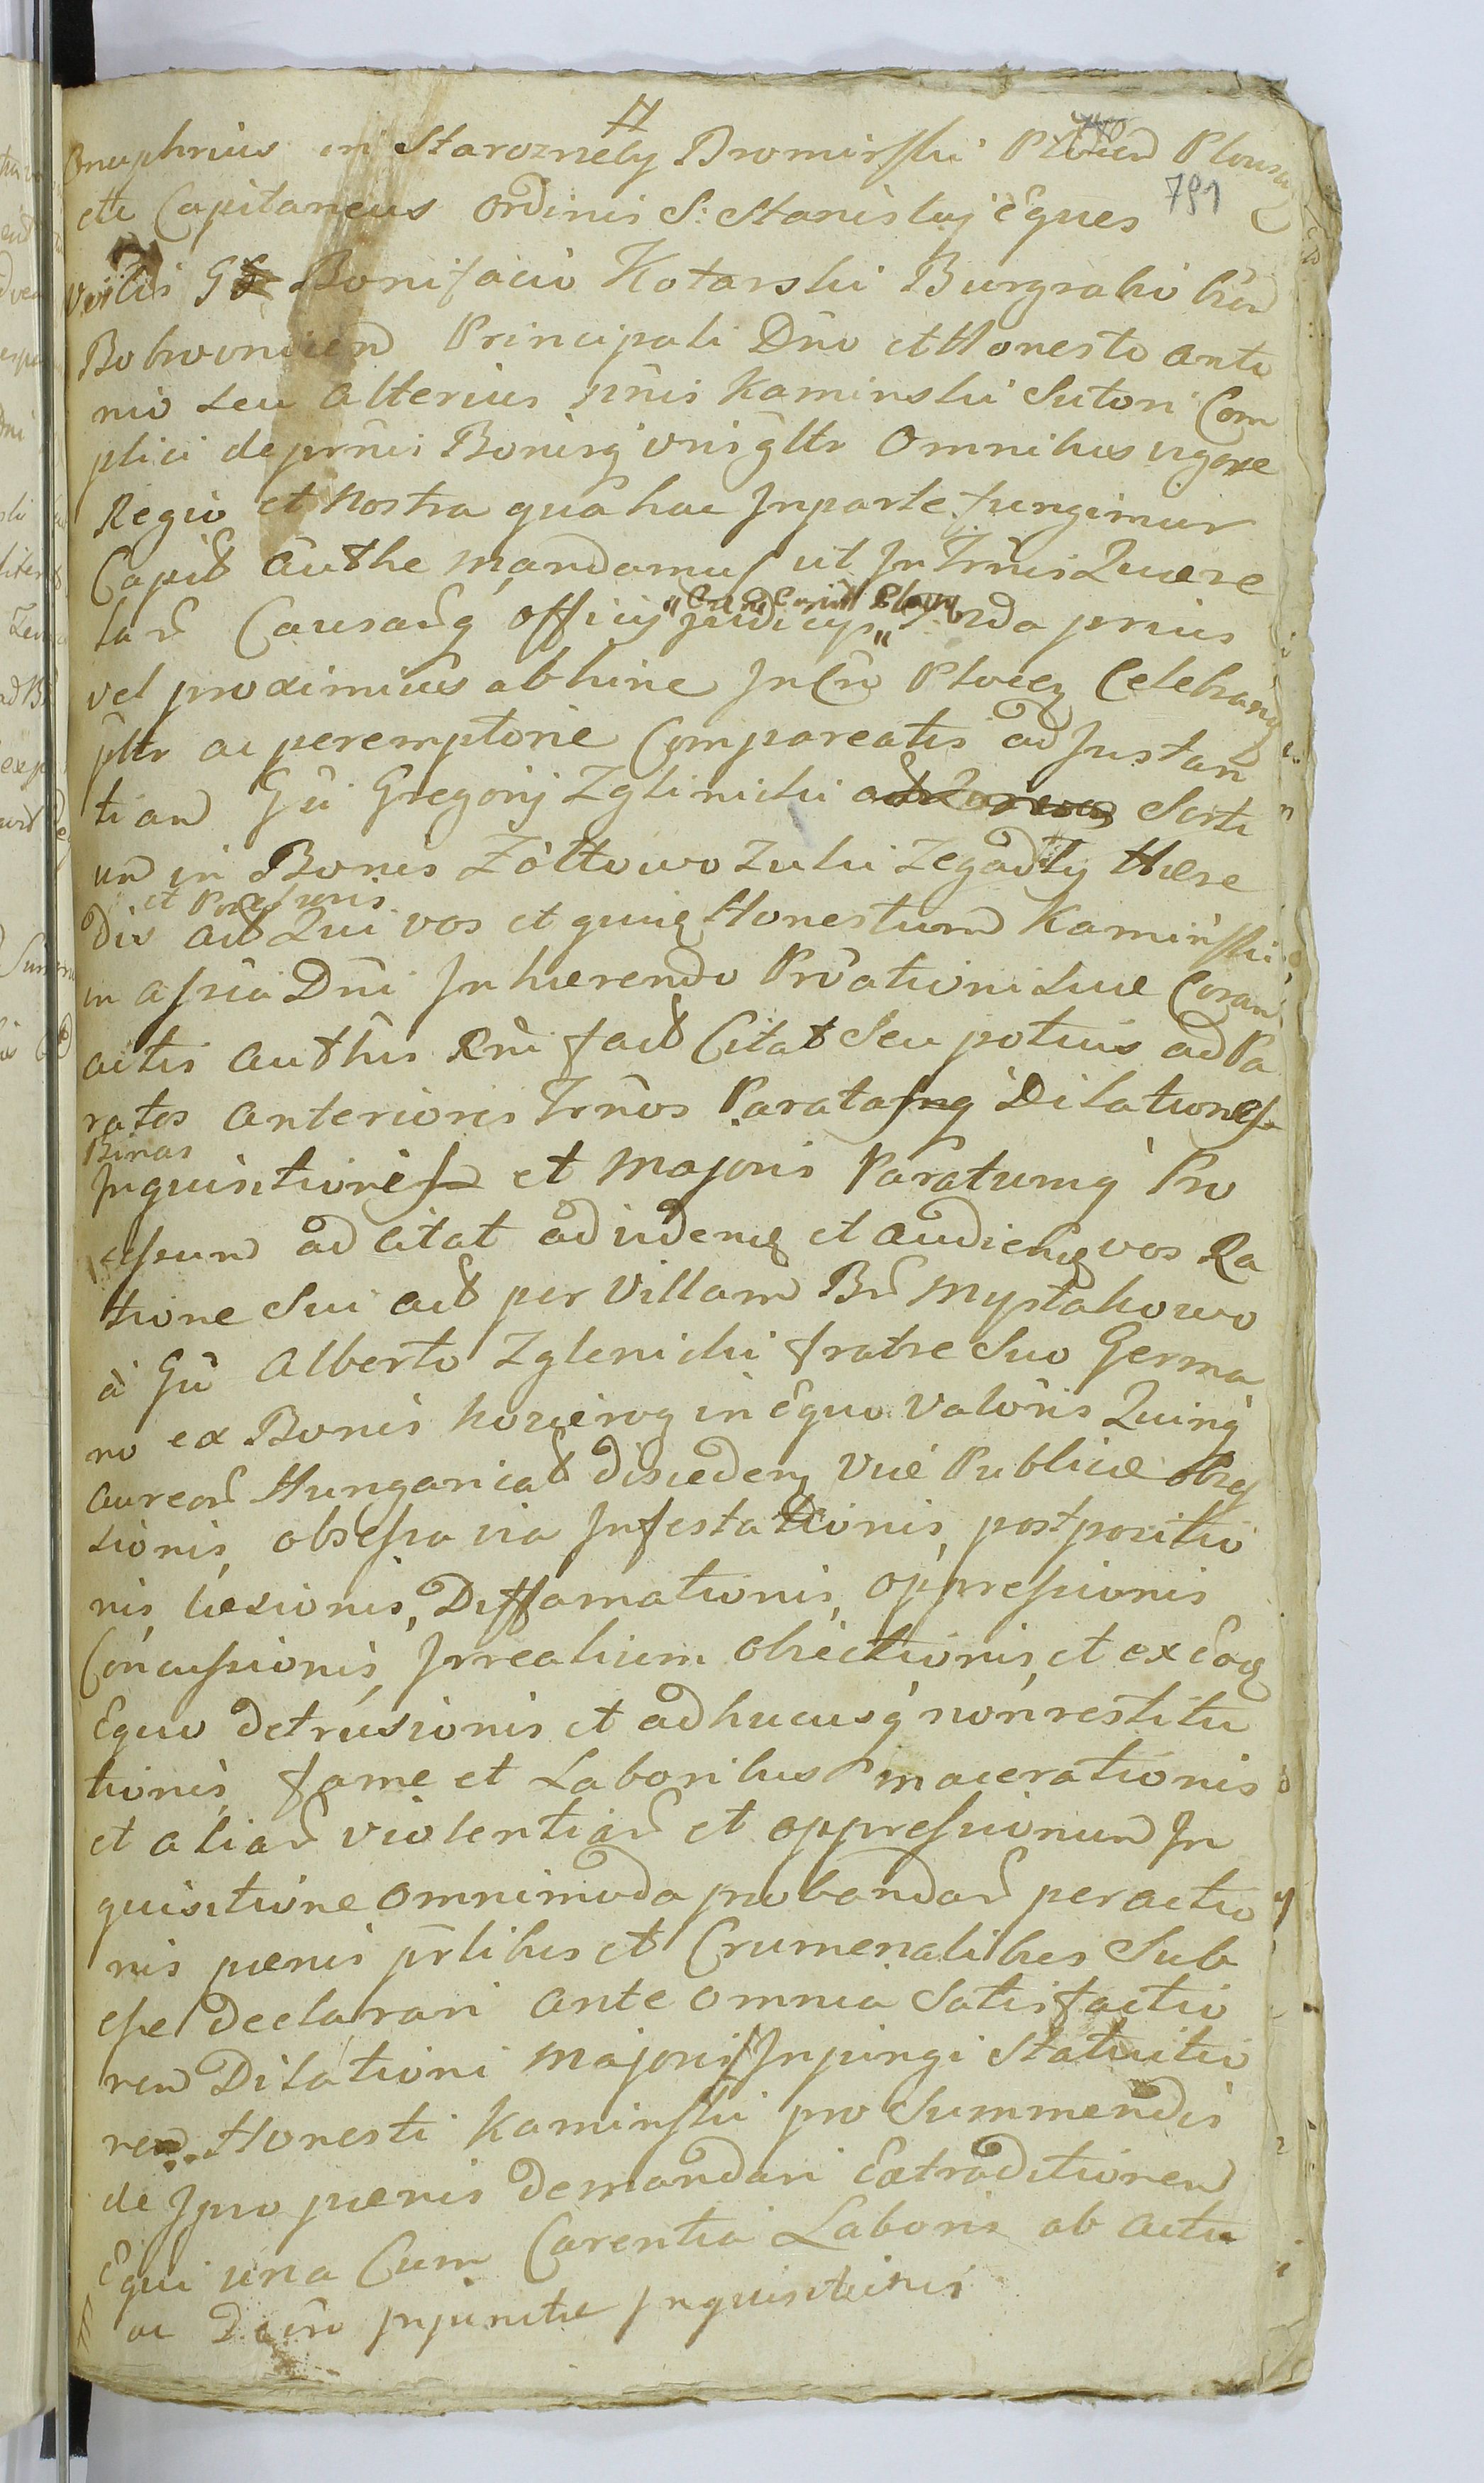 Onuphrius in Starozneby Bromirski Plocen Plonscen
etc Capitaneus Ordinis S: Stanislaj Eques
791
Vobis G Bonifacio Kotarski Burgrabio
Bobrovnicen Principali Dno et Honesto Anto
nio seu alterius nnis Kaminski Sutori Com
plici de prnis Bonisq vris gltr Omnibus vigore
Regio et Nostra qua hac Inparte fungimur
Capit Authe mandamus ut In Trnis Quere
lar Causarq officij judicijs prius
vel proximius abhinc In Cn Plocen Celebrand
pltr ac peremptorie Compareatis ad Instan
tiam Gsi Gregorij Zglinicki Sorti
um in Bonis Zółtowo Zulki Zegadly Hære
et Possessoris
dis act Qui vos et quiq Honestum Kaminski
in assia Dni Inhærendo Prõationi suæ Coram
actis Authis Rni fact Citat Seu potius ad Pa
ratos anterioris Trnos Paratasq Dilationes
Binas
Inquisitionis et Majoris Paratumq Pro
cessum ad citat ad videnq et audienq vos Ra
tione Sui act per Villam Br Mystkowo
à Gso Alberto Zglenicki fratre Suo Germa
no ex Bonis in Equo valoris Quinq
aureor Hungarical discedenq Viæ Publicæ obses
sionis, obsessa via Infestationis, postpositio
nis læsionis, Diffamationis, oppressionis
Concussionis, Irrealium obiectionis, et ex Eoq
Equo detrusionis et adhucusq non restitu
tionis, fame et Laboribus macerationis
et aliar violentiar et oppressionum In
quisitione omnimoda probandar peractio
nis pænis prlibus et Crumenalibus Sub
esse Declarari ante omnia Satisfactio
nem Dilationi majoris Inpingi Statuitio
nem Honesti Kaminski pro Summendis
de Ipso pænis demandari Extraditionem
Equi una Cum Carentia Laboris ab actu
ac Injunctæ Inquisitionis